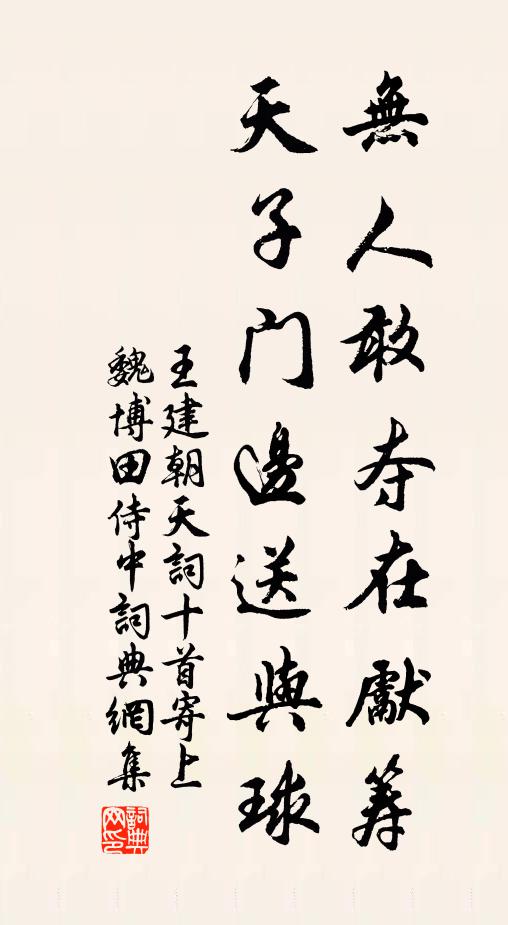 無人敢夺在獻筹
天子门邊送與球
王建朝天詞十首寄上
魏博田侍中詞典網集
詞典网印